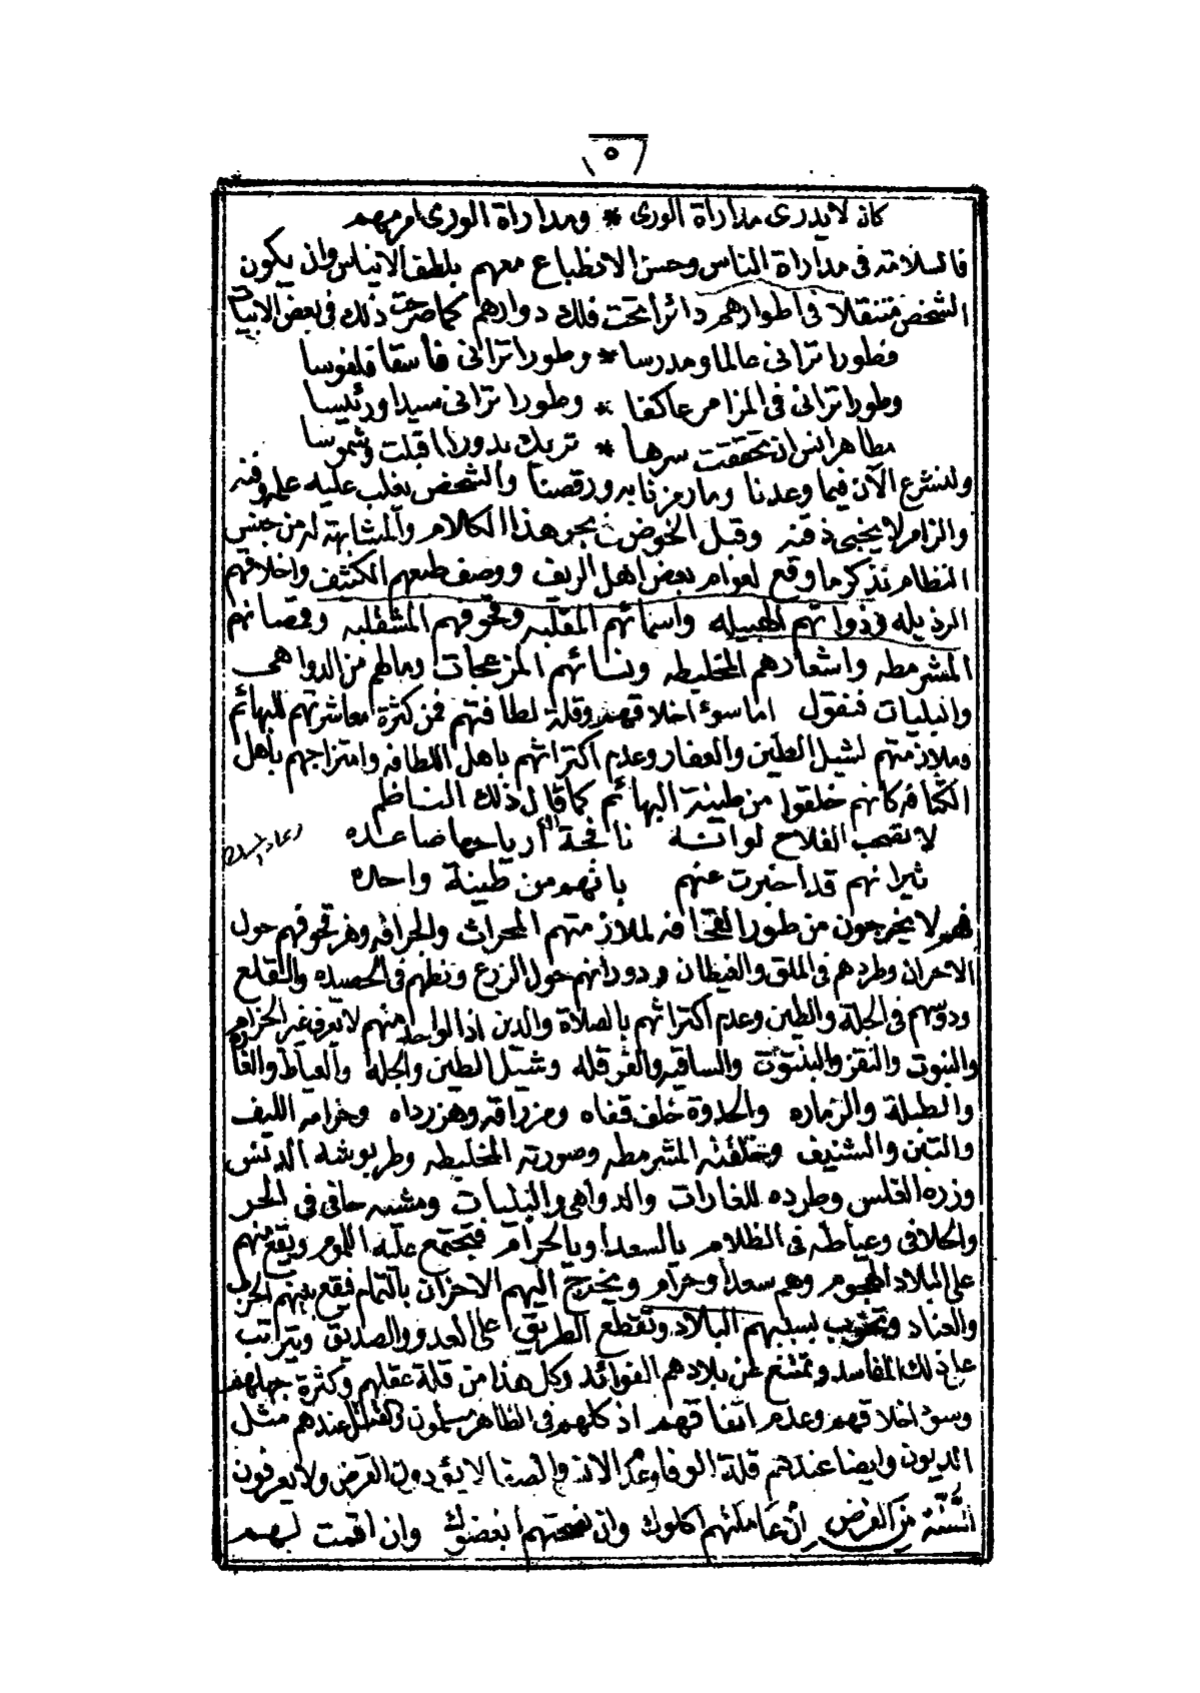 ٥
كان لا يدرى مداراة الورى * ومداراة الورى امر مهم
فالسلامة فى مداراة الناس وحسن الانطباع معهم بلطف الايناس وان يكون
الشخص متنقلا فى اطوارهم دائرا تحت فلك دوارهم كما صرحت ذلك فى بعض الابيات
فطورا ترانى عالما ومدرسا * وطورا ترانى فاسقا فلفوسا
وطورا ترانى فى المزامر عاكفا * وطورا ترانى سيدا ورئيسا
مظاهر انس ان تحققت سرها * تريك بدورا اقبلت وشموسا
ولنشرع الآن فيما وعدنا وما رمزنا به ورقصنا والشخص يغلب عليه علمه وفنه
والزامر لا يخبى ذقنه وقبل الخوض فى بحر هذا الكلام والمشابهة له من جنس
النظام نذكر ما وقع لعوام بعض اهل الريف ووصف طبعهم الكثيف واخلاقهم
الرذيله وذواتهم الهبيله واسمائهم المقلبه وقحوفهم المشقلبه وقمصانهم
المشرمطه واشعارهم المخليطه ونسائهم المزعجات وما لهم من الدواهى
والبليات فنقول اما سوء اخلاقهم وقلة لطافتهم فمن كثرة معاشرتهم للبهائم
وملازمتهم لشيل الطين والعفار وعدم اكتراثهم باهل اللطافه وامتزاجهم باهل
الكثافه كانهم خلقوا من طينة البهائم كما قال ذلك الناظم
لا تصحب الفلاح لو انه نافحة ارياحها صاعده
ثيرانهم قد اخبرت عنهم بانهم من طينة واحده
فهم لا يخرجون من طور القحافه لملازمتهم المحراث والجرافه وهز قحوفهم حول
الاجران وطردهم فى الملق والغيطان ودورانهم حول الزرع ونطهم فى الحصيده والقلع
ودوسهم فى الجلة والطين وعدم اكتراثهم بالصلاة والدين اذ الواحد منهم لا يعرف غير الحزام
والنبوت والنقز والبنتوت والساقيه والفرقله وشيل الطين والجله والعياط والغاره
والطبلة والزماره والحدوة خلف قفاه ومزراقه وهز رداه وحزامه الليف
والتبن والشنيف وخلقته المشرمطه وصورته المخليطه وطربوشه الدنس
وزره الغلس وطرده للغارات والدواهى والبليات ومشيه حافى فى الحر
والحلافى وعياطه فى الظلام يالسعد او يالحرام فتجتمع عليه اللوم ويقع منهم
على البلاد الهجوم وهم سعد وحرام ويخرج اليهم الاحزان بالتمام فيقع بينهم الحرب
والعناد وتخرب بسببهم البلاد وتقطع الطريق على العدو والصديق ويتراتب
على ذلك المفاسد وتمتنع عن بلادهم الفوائد وكل هذا من قلة عقلهم وكثرة جهلهم
وسوء اخلاقهم وعدم اتفاقهم اذ كلهم فى الظاهر مسلمون والقتل عندهم مثل
الديون وايضا عندهم قلة الوفا وعدم الانس والصفا لا يؤدون القرض ولا يعرفون
السنة من الفرض ان عاملتهم اكلوك وان نصحتهم ابغضوك وان اقمت لهم